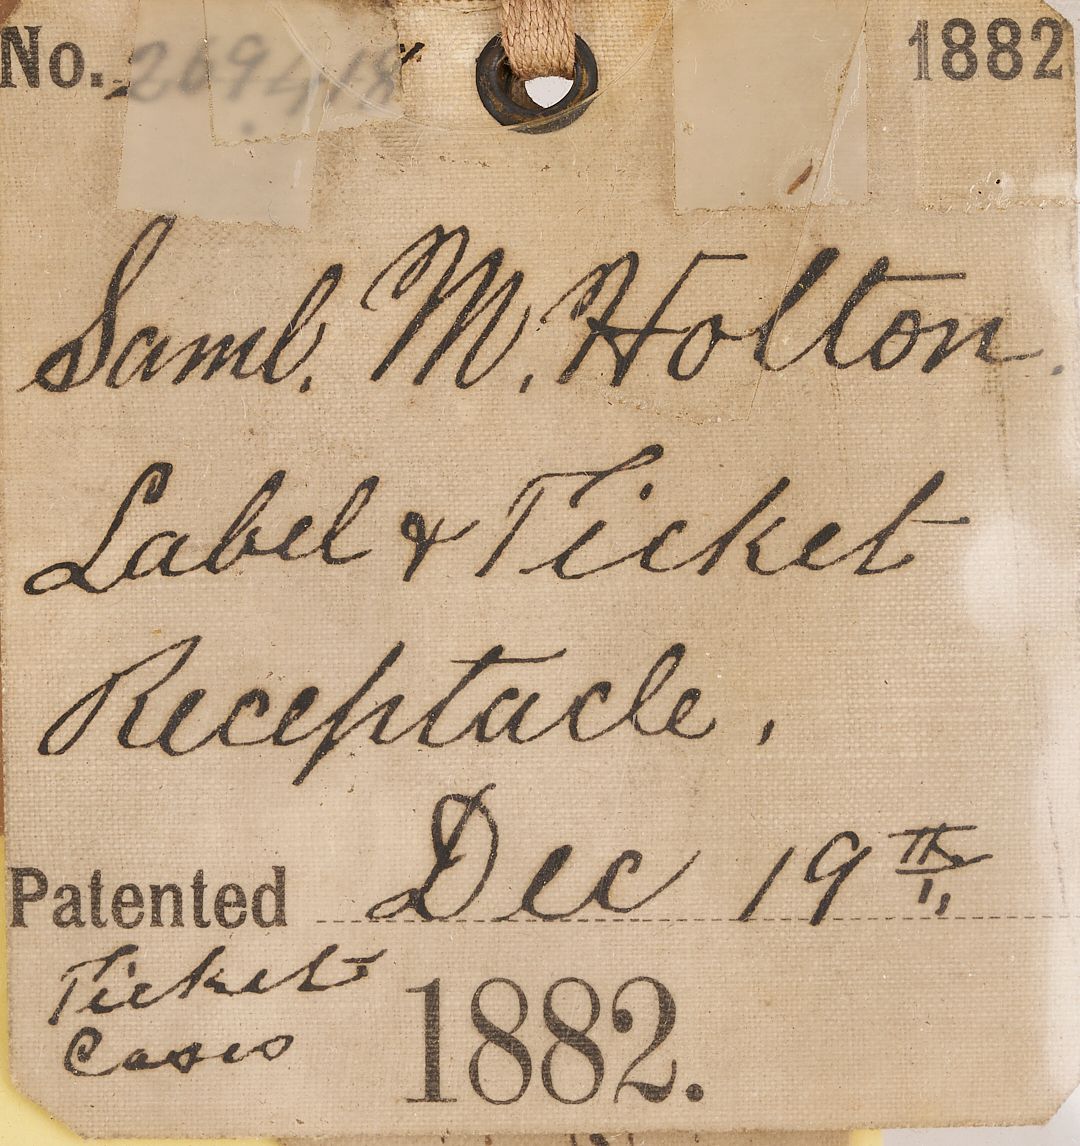 No. 269,418 1882
Saml. M. Holton.
Label & Ticket
Receptacle.
Patented Dec 19th,
Ticket
Cases
1882.